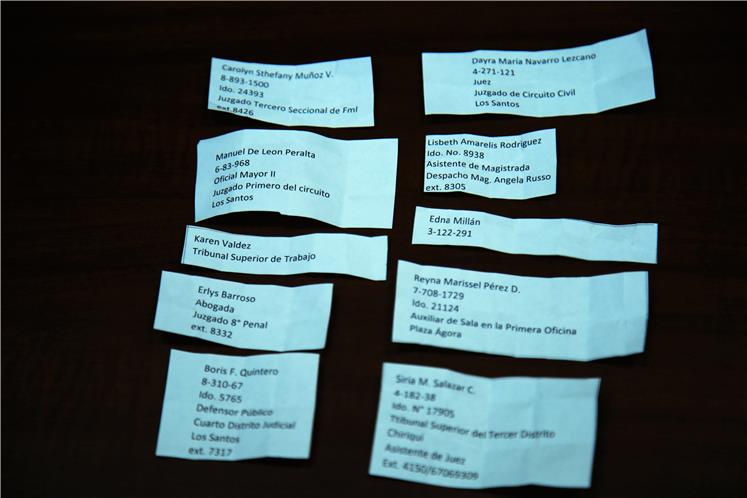 Carolyn Sthefany Muñoz V.
8-893-1500
Ido. 24393
Juzgado Tercero Seccional de Fml
ext.8426
Manuel De Leon Peralta
6-83-968
Oficial Mayor II
Juzgado Primero del circuito
Los Santos
Karen Valdez
Tribunal Superior de Trabajo
Erlys Barroso
Abogada
Juzgado 8° Penal
ext. 8332
Boris F. Quintero
8-310-67
Ido. 5765
Defensor Público
Cuarto Distrito Judicial
Los Santos
ext. 7317
Dayra Maria Navarro Lezcano
4-271-121
Juez
Juzgado de Circuito Civil
Los Santos
Lisbeth Amarelis Rodriguez
Ido. No. 8938
Asistente de Magistrada
Despacho Mag. Angela Russo
ext. 8305
Edna Millán
3-122-291
Reyna Marissel Pérez D.
7-708-1729
Ido. 21124
Auxiliar de Sala en la Primera Oficina
Plaza Ágora
Siria M. Salazar C.
4-182-38
Ido. N° 17905
Ttibunal Superior del Tercer Distrito
Chiriquí
Asistente de Juez
Ext. 4150/67069309